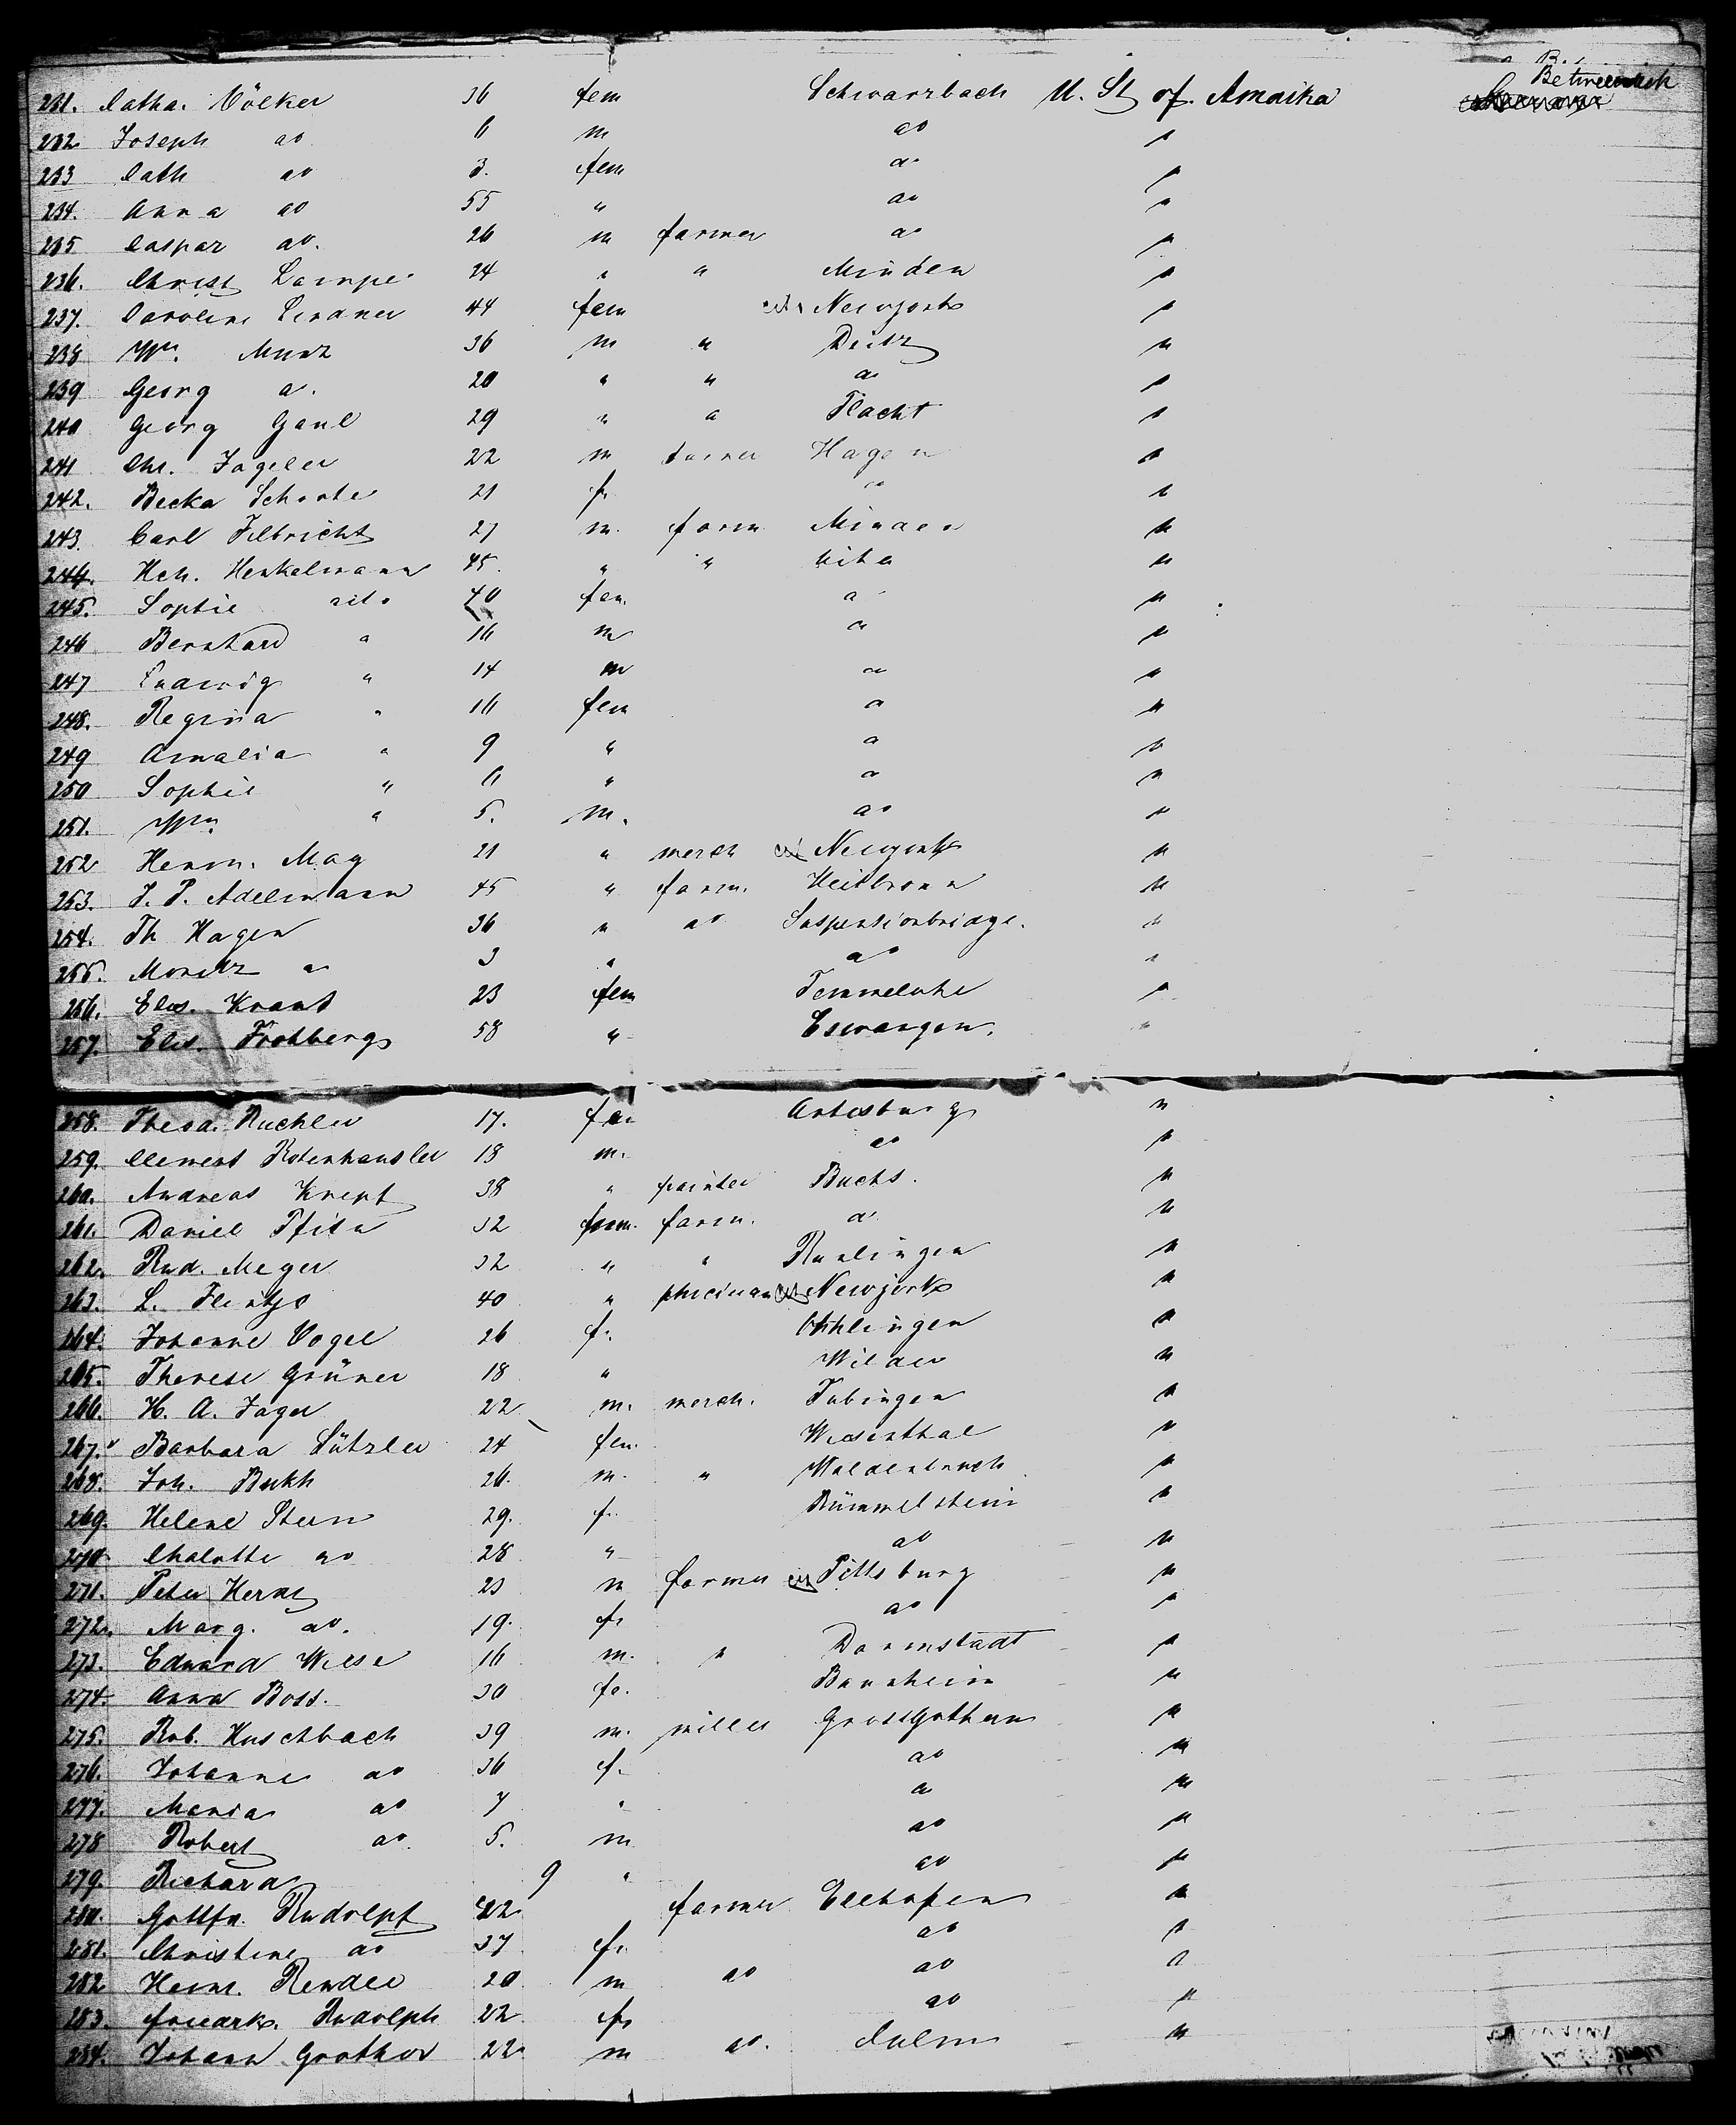 Between deck
231. Catha. Völker 36 fem Schwarzbach U. St of. Amaika
232 Joseph do 6 m do "
233 Cath do 3. fem do "
234. Anna do 55 " do "
235 Caspar do. 26 m farmer do "
236. Christ Lampe 24 " " Minden "
237. Caroline Lindner 44 fem Newyork "
238 Wm. Munz 36 m " Deitz "
239 Georg do. 20 " " do "
240 Georg Gaul 29 " " Flacht "
241 Chr. Jageler 22 m farmer Hagen "
242. Becka Schoote 21 f. "
243. Carl Filbricht 27 m. farm Minden "
244. Hch. Henkelmann 45. " " "
245. Sophie dito 40 fem. " "
246 Bernhard " 16 m " "
247 Ludwig " 14 m " "
248. Regina " 16 fem " "
249 Amalia " 9 " " "
250 Sophie " 6 " " "
251. Wm. " 5. m. do "
252 Herm. May 21 " merch Newyork "
253. J. P. Adelmann 45 " farm. Heilbronn "
254. Th Hagen 36 " do Suspensionbridge. "
255. Moritz do 3 " do "
256. Elis. Krant 23 fem "
257. Elis. Frohberg 58 " Eswangen. "
258. Theod. Ruchler 17. fem "
259. Clement Rotenhausler 18 m. do "
260. Andreas Knept 38 " painter Buchs. "
261. Daniel 32 farm. do "
262. Rud. Meyer 32 " " "
263. L. 40 " Newjork "
264. Johanne Vogel 26 f. "
265. Therese Grüner 18 " "
266. H. A. Jager 22 m. merch. Tubingen "
267. Barbara Lützler 24 fem. Wiesenthal "
268. Joh. Bukh 26. m. " Waldenbuch "
269. Helene Stern 29. f. Rümmelstein "
270. Chalotte do 28 " do "
271. Peter Kerns 23 m farmer Pittsburg "
272. Marg. do. 19. f. do "
273. Edward Wiese 16 m. " Darmstadt "
274. Anna Boss. 30 fe. "
275. Rob. Huschbach 39 m. miller "
276. Johanne do 36 f. do "
277. Maria do 7 " do "
278 Robert do 5. m do "
279. Richard 9 " do "
280. Gottfr. Rudolph 42 farmer Ellhofen "
281. Christine do 37 f. do "
282 Heinr. Rendel 20 m do do "
283. Rudolph 22 f. do "
284. Johann 22 m do. Culm "